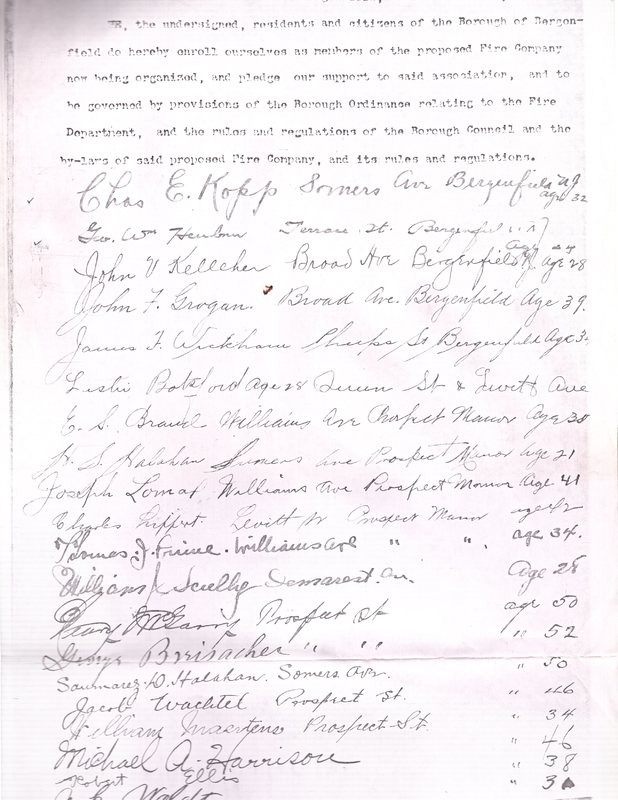 WE, the undersigned, residents and citizens of the Borough of Bergen-
field do hereby enroll ourselves as members of the proposed Fire Company
now being organized, and pledge our support to said association, and to
be governed by provisions of the Borough Ordinance relating to the Fire
Department, and the rules and regulations of the Borough Council and the
by-laws of said proposed Fire Company, and its rules and regulations.
Chas E. Kopp Somers Ave Bergenfield NJ age 32
Geo. Wm Terrace St. Bergenfield N.J.
John V Kelleher Broad Ave Bergenfield NJ age 28
John F. Grogan. Broad Ave. Bergenfield Age 39.
James F. Wickham Phelps St Bergenfield Age
Leslie Botsford age 28 St & Ave
E. S. Williams Ave Prospect Manor Age
H. S. Halahan Somers Ave Prospect Manor Age 21
Joseph Lomax Williams Ave Prospect Manor Age 41
Charles Lippert. Levitt Prospect Manor age 42
Thomas. J. Williams Ave " ". age 34.
William J Scully Demarest Av. Age 28
McGarry Prospect St age 50
George Breisacher " " " 52
Saumarez. D. Halahan. Somers Ave. " 50
Jacob Wachtel Prospect St. " 46
William Maertens Prospect St. " 34
Michael A. Harrison " 46
Robert Ellis " 38
" 3